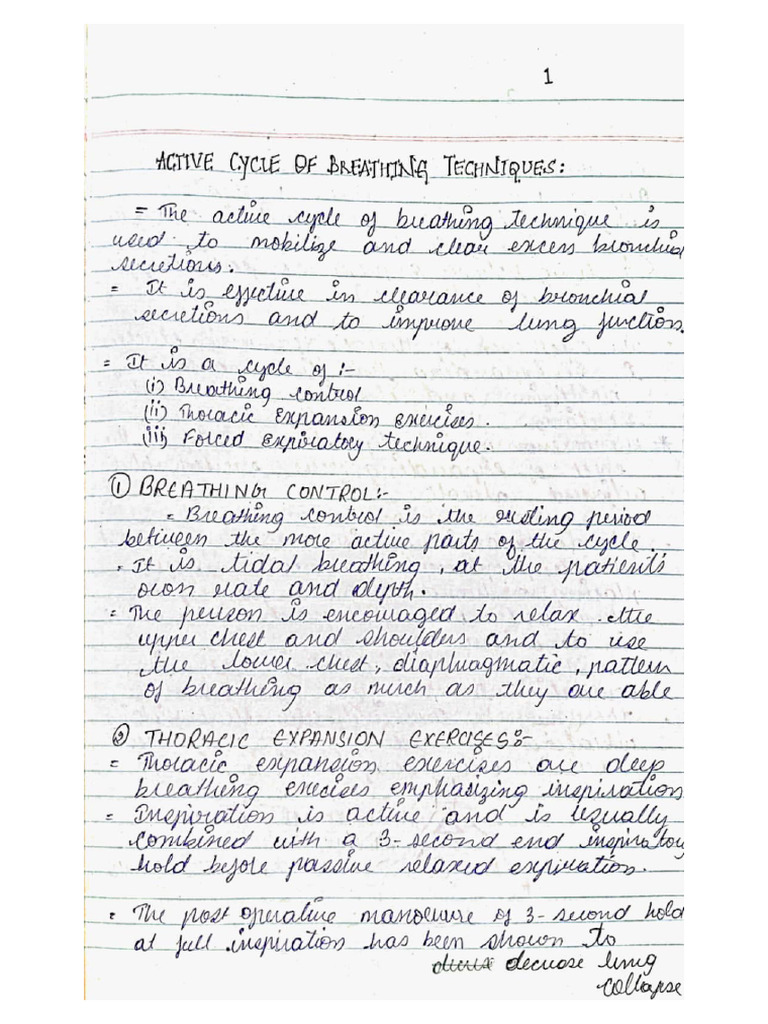 1
ACTIVE CYCLE OF BREATHING TECHNIQUES:
= The active cycle of breathing technique is
used to mobilize and clear excess bronchial
secretions.
= It is effective in clearance of bronchial
secretions and to improve lung function.
= It is a cycle of :-
(i) Breathing control
(ii) Thoracic Expansion exercises.
(iii) Forced Expiratory technique.
① BREATHING CONTROL:-
= Breathing control is the resting period
between the more active parts of the cycle.
= It is tidal breathing, at the patient's
own rate and depth.
= The person is encouraged to relax the
upper chest and shoulders and to use
the lower chest, diaphragmatic, pattern
of breathing as much as they are able
② THORACIC EXPANSION EXERCISES:-
= Thoracic expansion exercises are deep
breathing execises emphasizing inspiration
= Inspiration is active and is usually
combined with a 3-second end inspiratory
hold before passive relaxed expiration.
= The post operative manoeuvre of 3-second hold
at full inspiration has been shown to
decrease lung
collapse